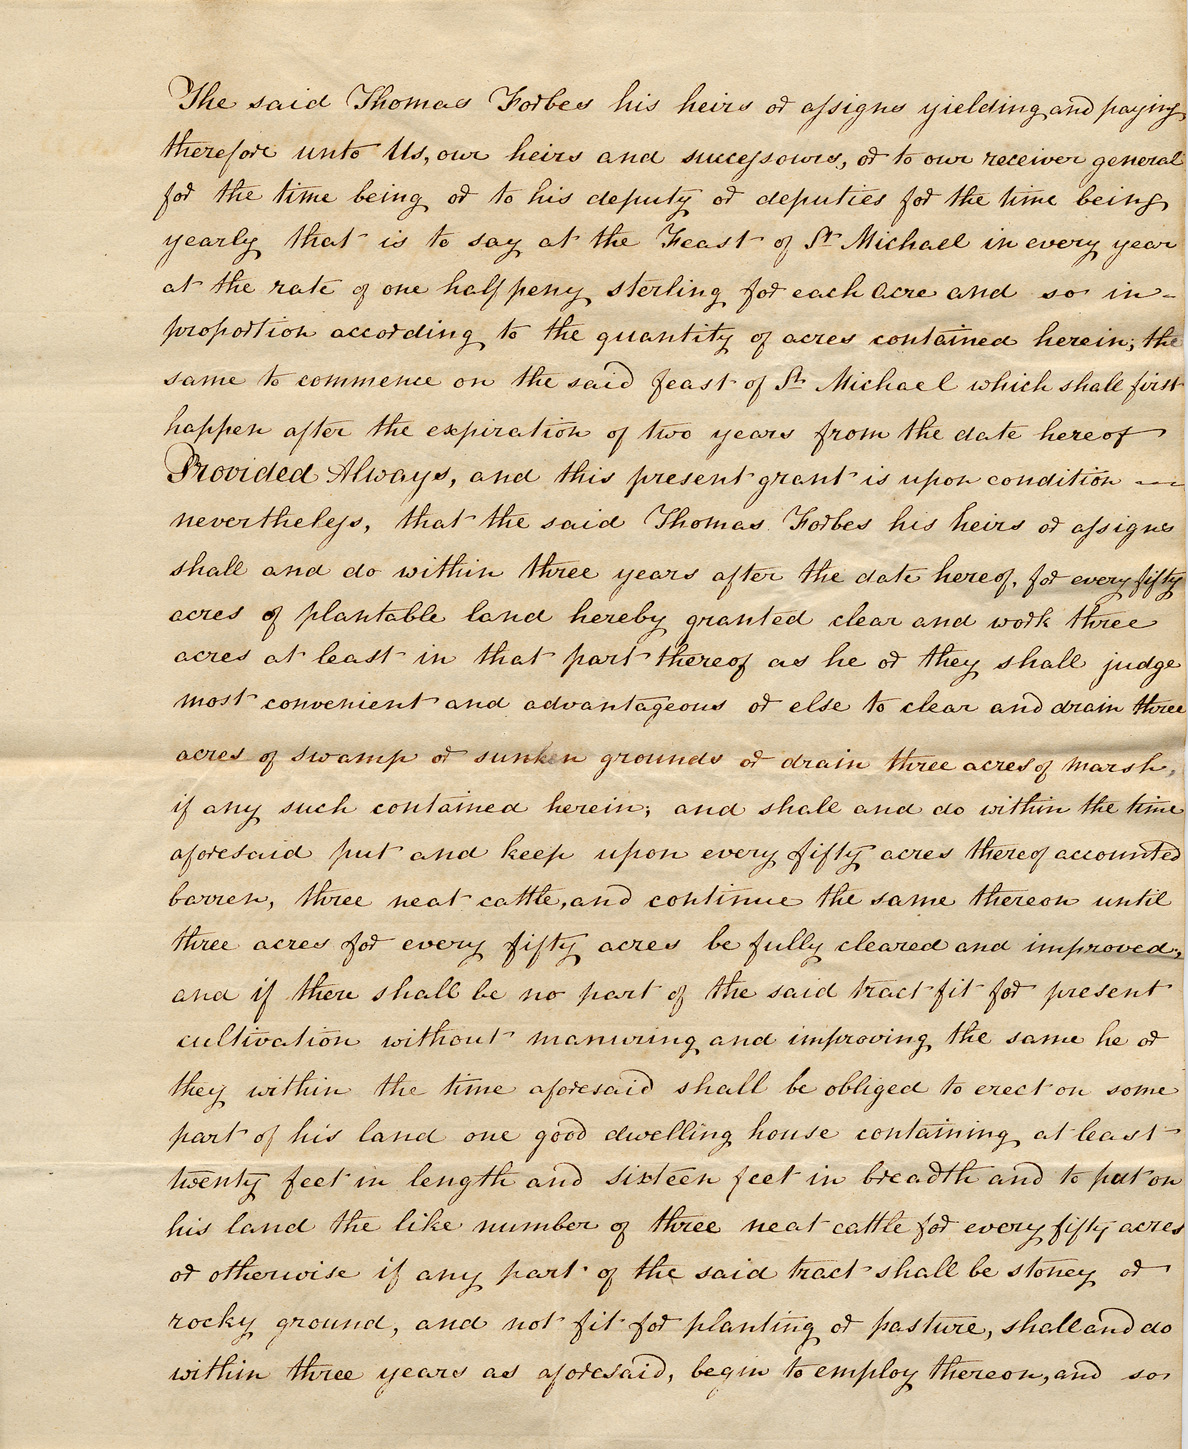 The said Thomas Forbes his heirs or assigns yielding and paying
therefore unto Us, our heirs and successours, or to our receiver general
for the time being or to his deputy or deputies for the time being
yearly that is to say at the Feast of St Michael in every year
at the rate of one half peny sterling for each Acre and so in-
proportion according to the quantity of acres contained herein; the
same to commence on the said feast of St Michael which shall first
happen after the expiration of two years from the date hereof
Provided Always, and this present grant is upon condition —
nevertheless, that the said Thomas Forbes his heirs or assigns
shall and do within three years after the date hereof, for every fifty
acres of plantable land hereby granted clear and work three
acres at least in that part thereof as he or they shall judge
most convenient and advantageous or else to clear and drain three
acres of swamp or sunken grounds or drain three acres of marsh,
if any such contained herein; and shall and do within the time
aforesaid put and keep upon every fifty acres thereof accounted
barren, three neat cattle, and continue the same thereon until
three acres for every fifty acres be fully cleared and improved;
and if there shall be no part of the said tract fit for present
cultivation without manuring and improving the same he or
they within the time aforesaid shall be obliged to erect on some
part of his land one good dwelling house containing at least
twenty feet in length and sixteen feet in breadth and to put on
his land the like number of three neat cattle for every fifty acres
or otherwise if any part of the said tract shall be stoney or
rocky ground, and not fit for planting or pasture, shall and do
within three years as aforesaid, begin to employ thereon, and so